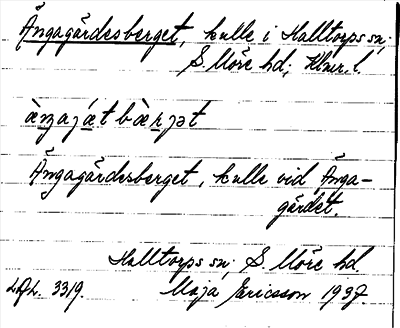 Ängagärdesberget, kulle i Halltorps sn;
S. Möre hd; Klmr. l.
Ängagärdesberget, kulle vid Änga-
gärdet.
Halltorps sn; S. Möre hd.
3319. Maja Ericsson 1937.